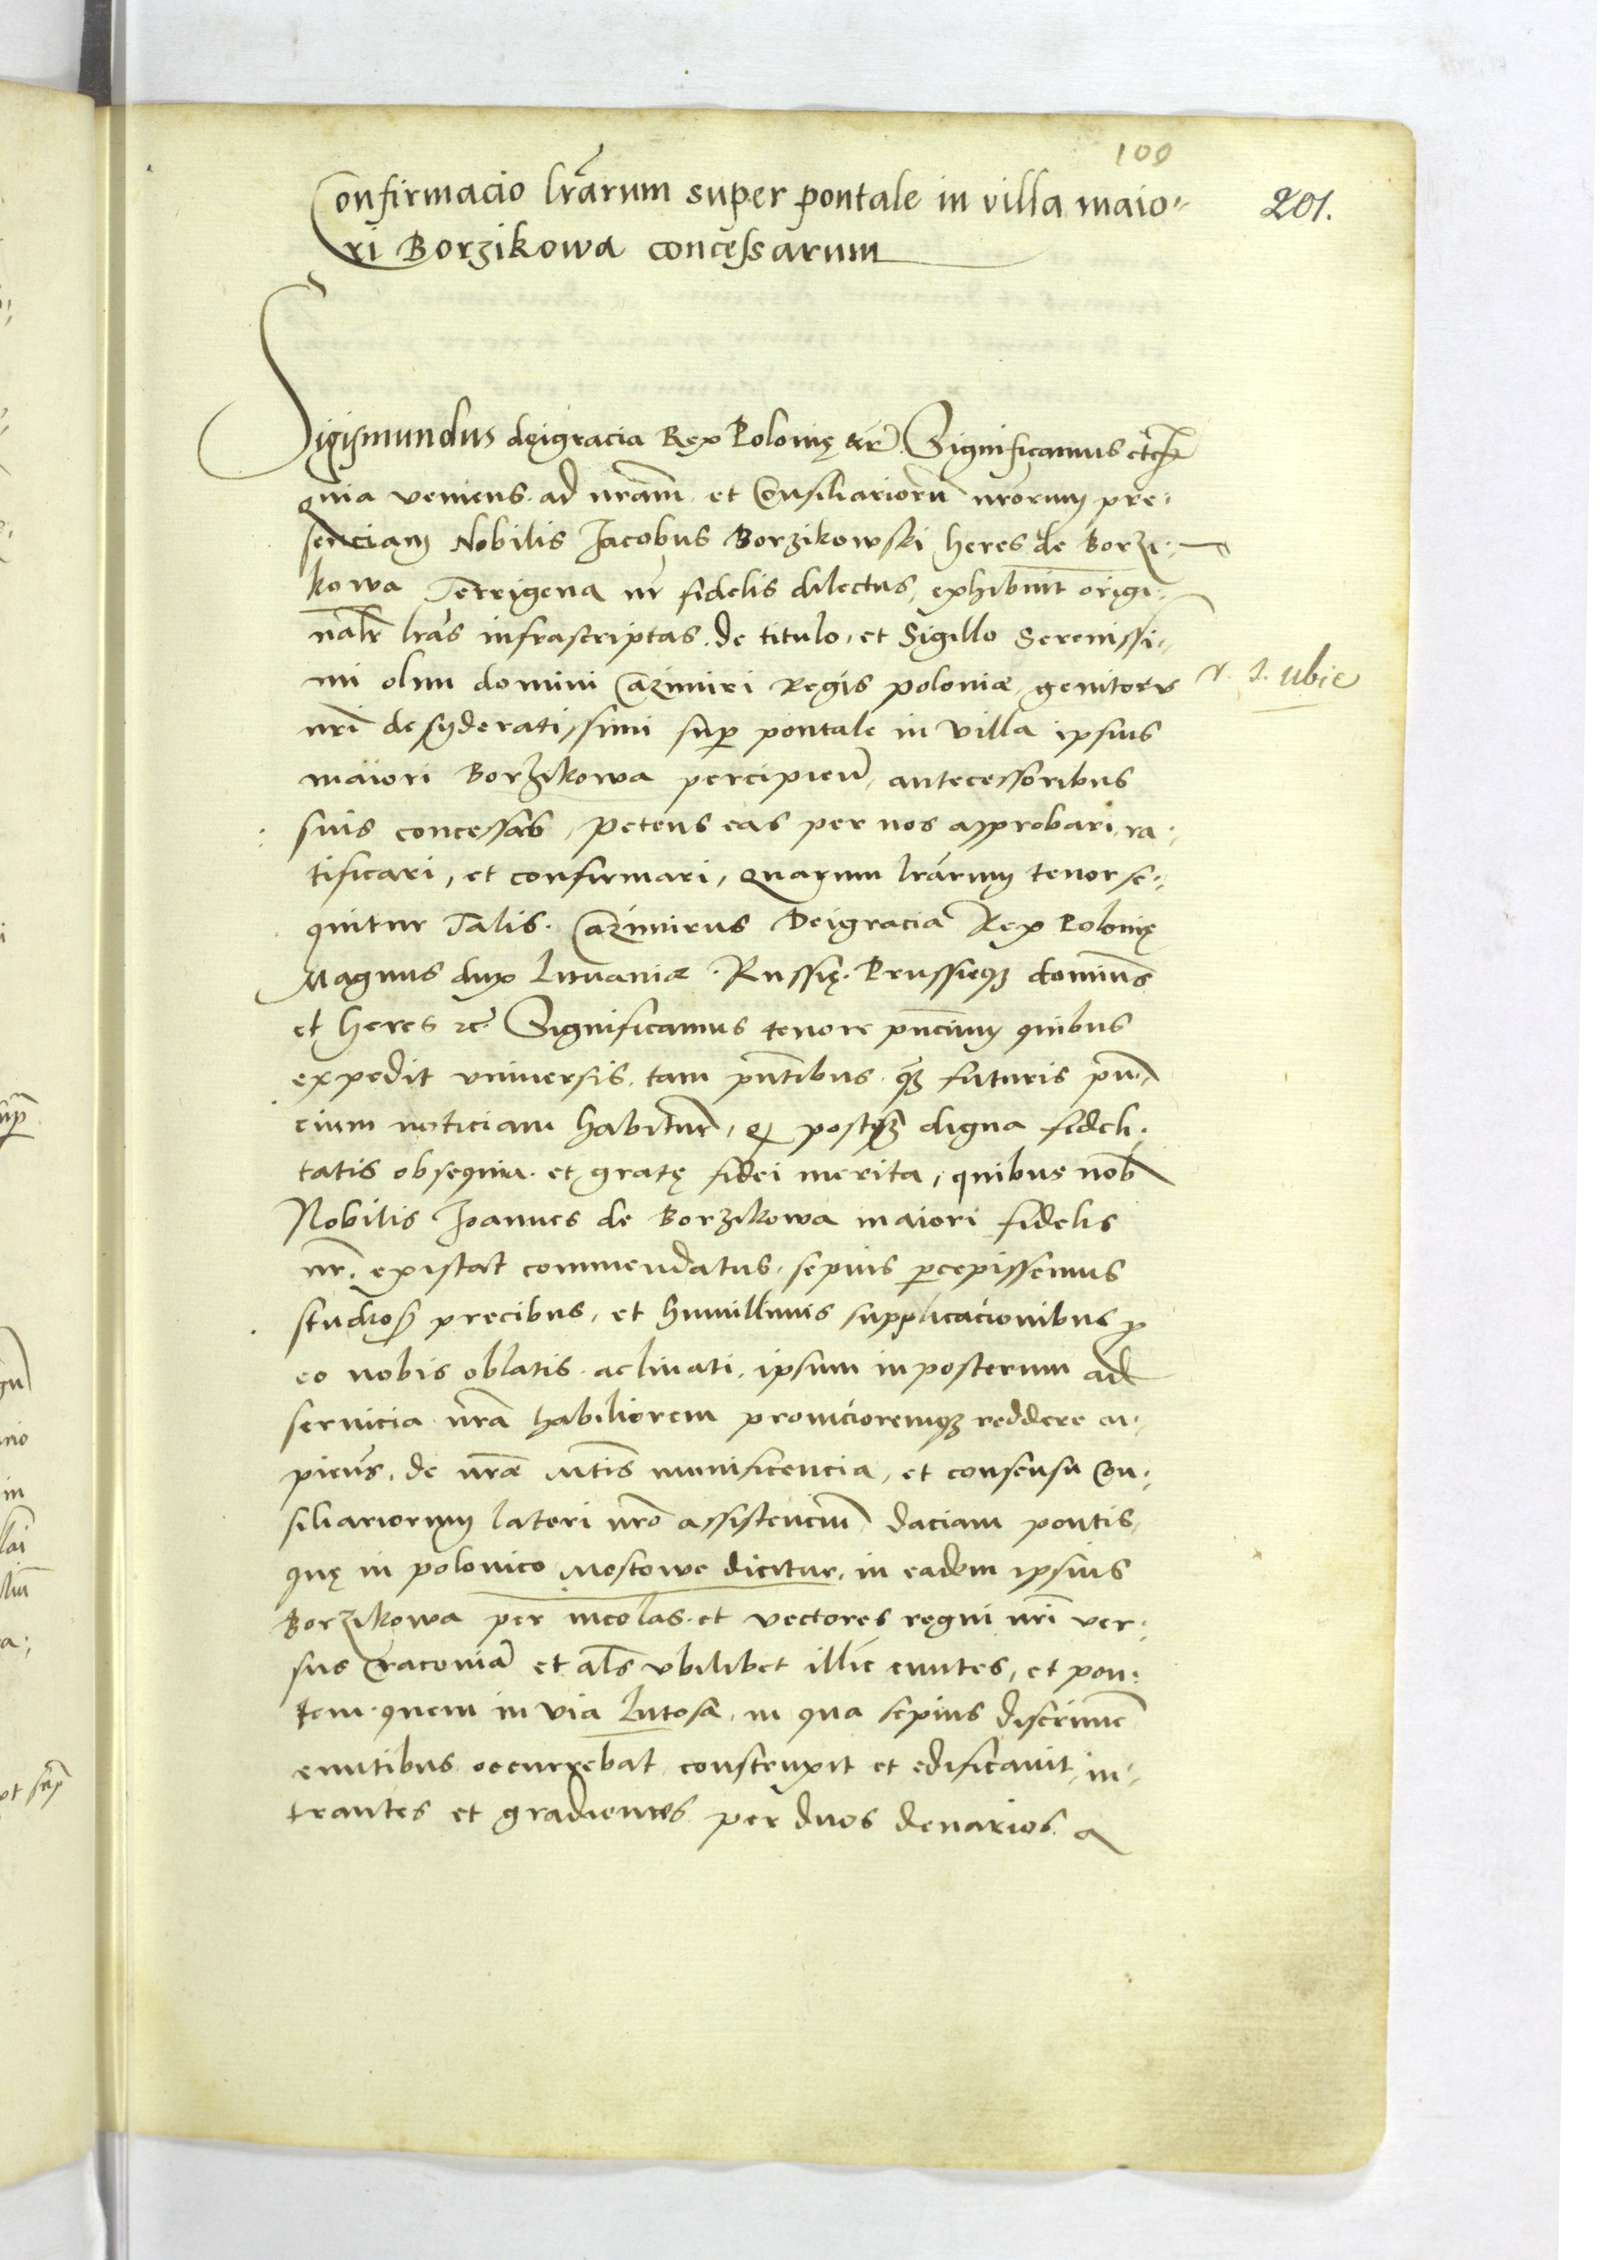 109
201.
Confirmacio lrãrum super pontale in villa maio-
ri Borzikowa concessarum
Sigismundus dei gracia Rex Polonię etc̃ Significamus etc̃
quia veniens ad nrãm et Consiliariorũ nrõrum pre-
senciam Nobilis Jacobus Borzikowski heres de Borzi-
kowa Terrigena nr̃ fidelis dilectus, exhibuit origi-
nalr̃ lrãs infrascriptas de titulo, et Sigillo Serenissi-
mi olim domini Cazimiri Regis poloniæ genitoris
nrĩ desyderatissimi sup̱ pontale in villa ipsius
maiori Borzikowa percipien̄ antecessoribus
suis concessas, petens eas per nos approbari, ra-
tificari, et confirmari, quarum lrãrum tenor se-
quitur Talis. Cazimirus Dei gracia Rex Polonię
Magnus dux Lituaniæ Russię Prussieqȝ dominus
et heres etc̃ Significamus tenore pñcium quibus
expedit vniversis, tam pñtibus qȝ futuris pñ-
cium noticiam habitur̃, q̃ postqȝ digna fideli-
tatis obsequia et gratę fidei merita, quibus nob̃
Nobilis Joannes de Borzikowa maiori fidelis
nr̃ existat commendatus, sepius p̱cepissemus
studios̃ precibus, et humillimis supplicacionibus p̱
eo nobis oblatis aclinati, ipsum in posterum ad
servicia nrã habiliorem promcioremqȝ reddere cu-
pieñs, de nrãe Mtĩs munificencia, et consensu Con-
siliariorum lateri nrõ assistenciũ daciam pontis
quę in polonico Mostowe dicitur, in eadem ipsius
Borzikowa per incolas et vectores regni nrĩ ver-
sus Cracoviã et als̃ vbilibet illic euntes, et pon-
tem quem in via Lutosa, in qua sepius discrimẽ
euntibus occurrebat construxit et edificauit, in-
trantes et gradientes per duos denarios a